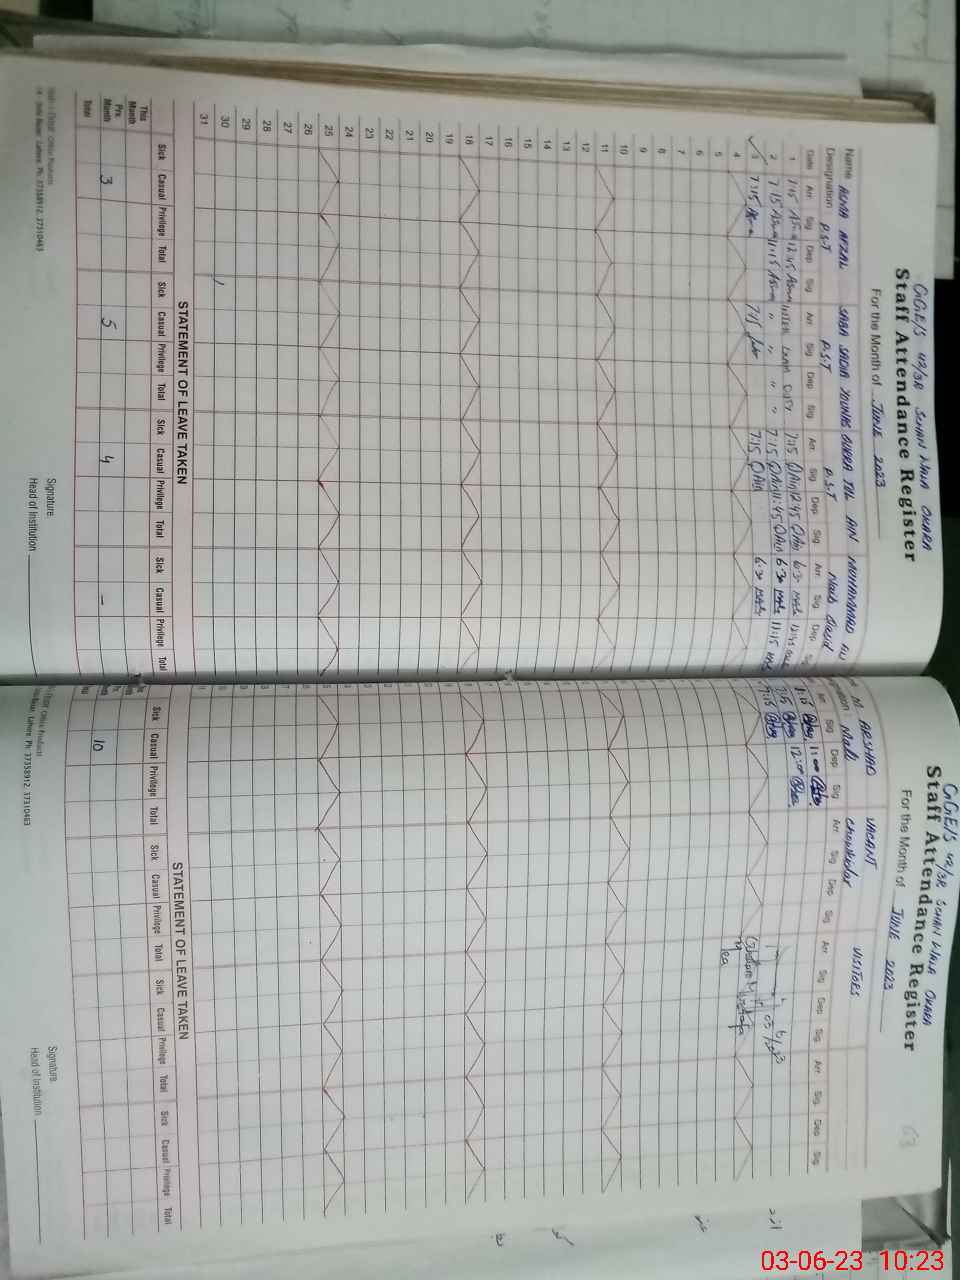 GGE/S 42/3R SOHAN WALA OKARA
Staff Attendance Register
For the Month of JUNE 2023
Name ASMA AFZAL SABA SADIA YOUNAS QURRA TUL AIN MUHAMMAD ALI
Designation: P.S.T P.S.T P.S.T Naib Qasid
Date Arr. Sig. Dep Sig. Arr. Sig. Dep Sig. Arr. Sig. Dep Sig. Arr. Sig. Dep
1 7:15 Asma 12:45 Asma 7:15 QAin 12:45 QAin 6:30
2 7:15 Asma 11:15 Asma " " " " 7:15 QAin 11:45 QAin 6:30 11:15
3 7:15 Asma 7:15 7:15 QAin 6:30
4
5
6
7
8
9
10
11
12
13
14
15
16
17
18
19
20
21
22
23
24
25
26
27
28
29
30
31
STATEMENT OF LEAVE TAKEN
Sick Casual Privilege Total Sick Casual Privilege Total Sick Casual Privilege Total Sick Casual Privilege Total
This Month
Prv. Month 3 5 4 -
Total
Signature
Head of Institution
Office Products
Lahore. Ph: 37358912, 37310463
GGE/S 42/3R SOHAN WALA OKARA
Staff Attendance Register
For the Month of JUNE 2023
M ARSHAD VACANT VISITORS
Mali Chowkidar
Arr. Sig Dep Sig. Arr Sig Dep Sig. Arr Sig Dep Sig. Arr Sig. Dep Sig.
11:00
7:15 12:00
7:15
Ghulam Mustafa
STATEMENT OF LEAVE TAKEN
Sick Casual Privilege Total Sick Casual Privilege Total Sick Casual Privilege Total Sick Casual Privilege Total
10
Signature
Head of Institution
Office Products
Lahore. Ph: 37358912, 37310463
03-06-23 10:23